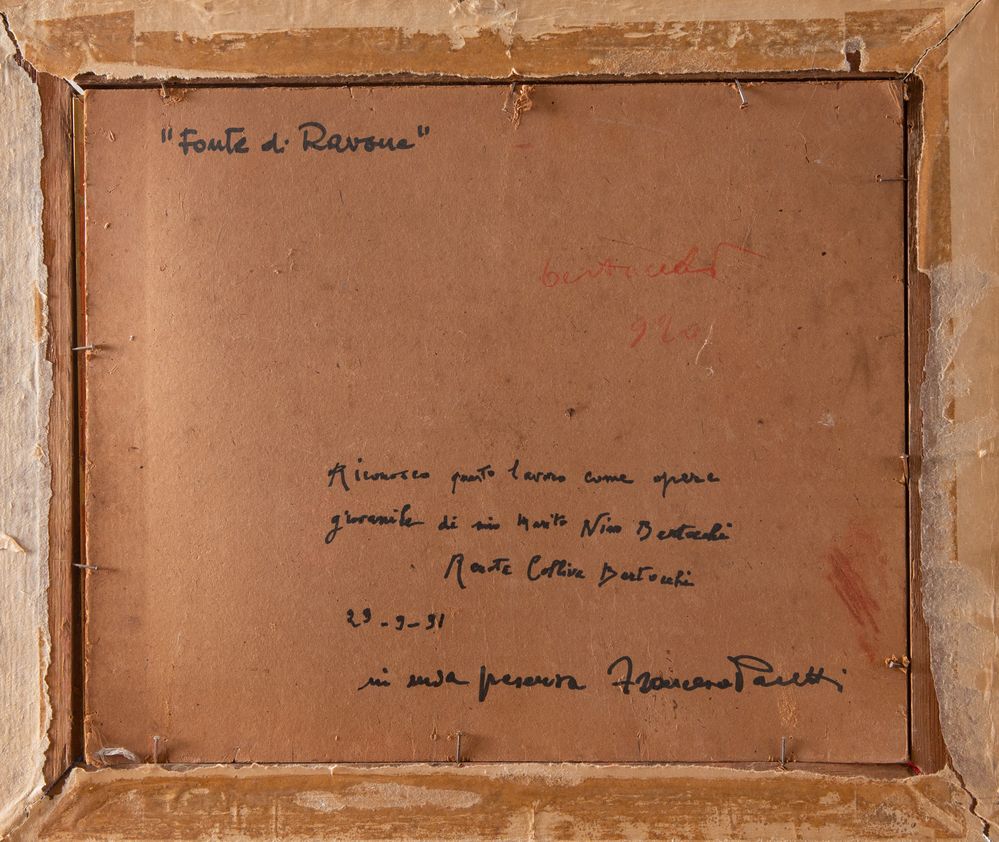 "Fonte di Ravone"
bertocchi
920
Riconosco questo lavoro come opera
giovanile di mio marito Nino Bertocchi
Renata Colliva Bertocchi
29-9-91
in mia presenza Francesco